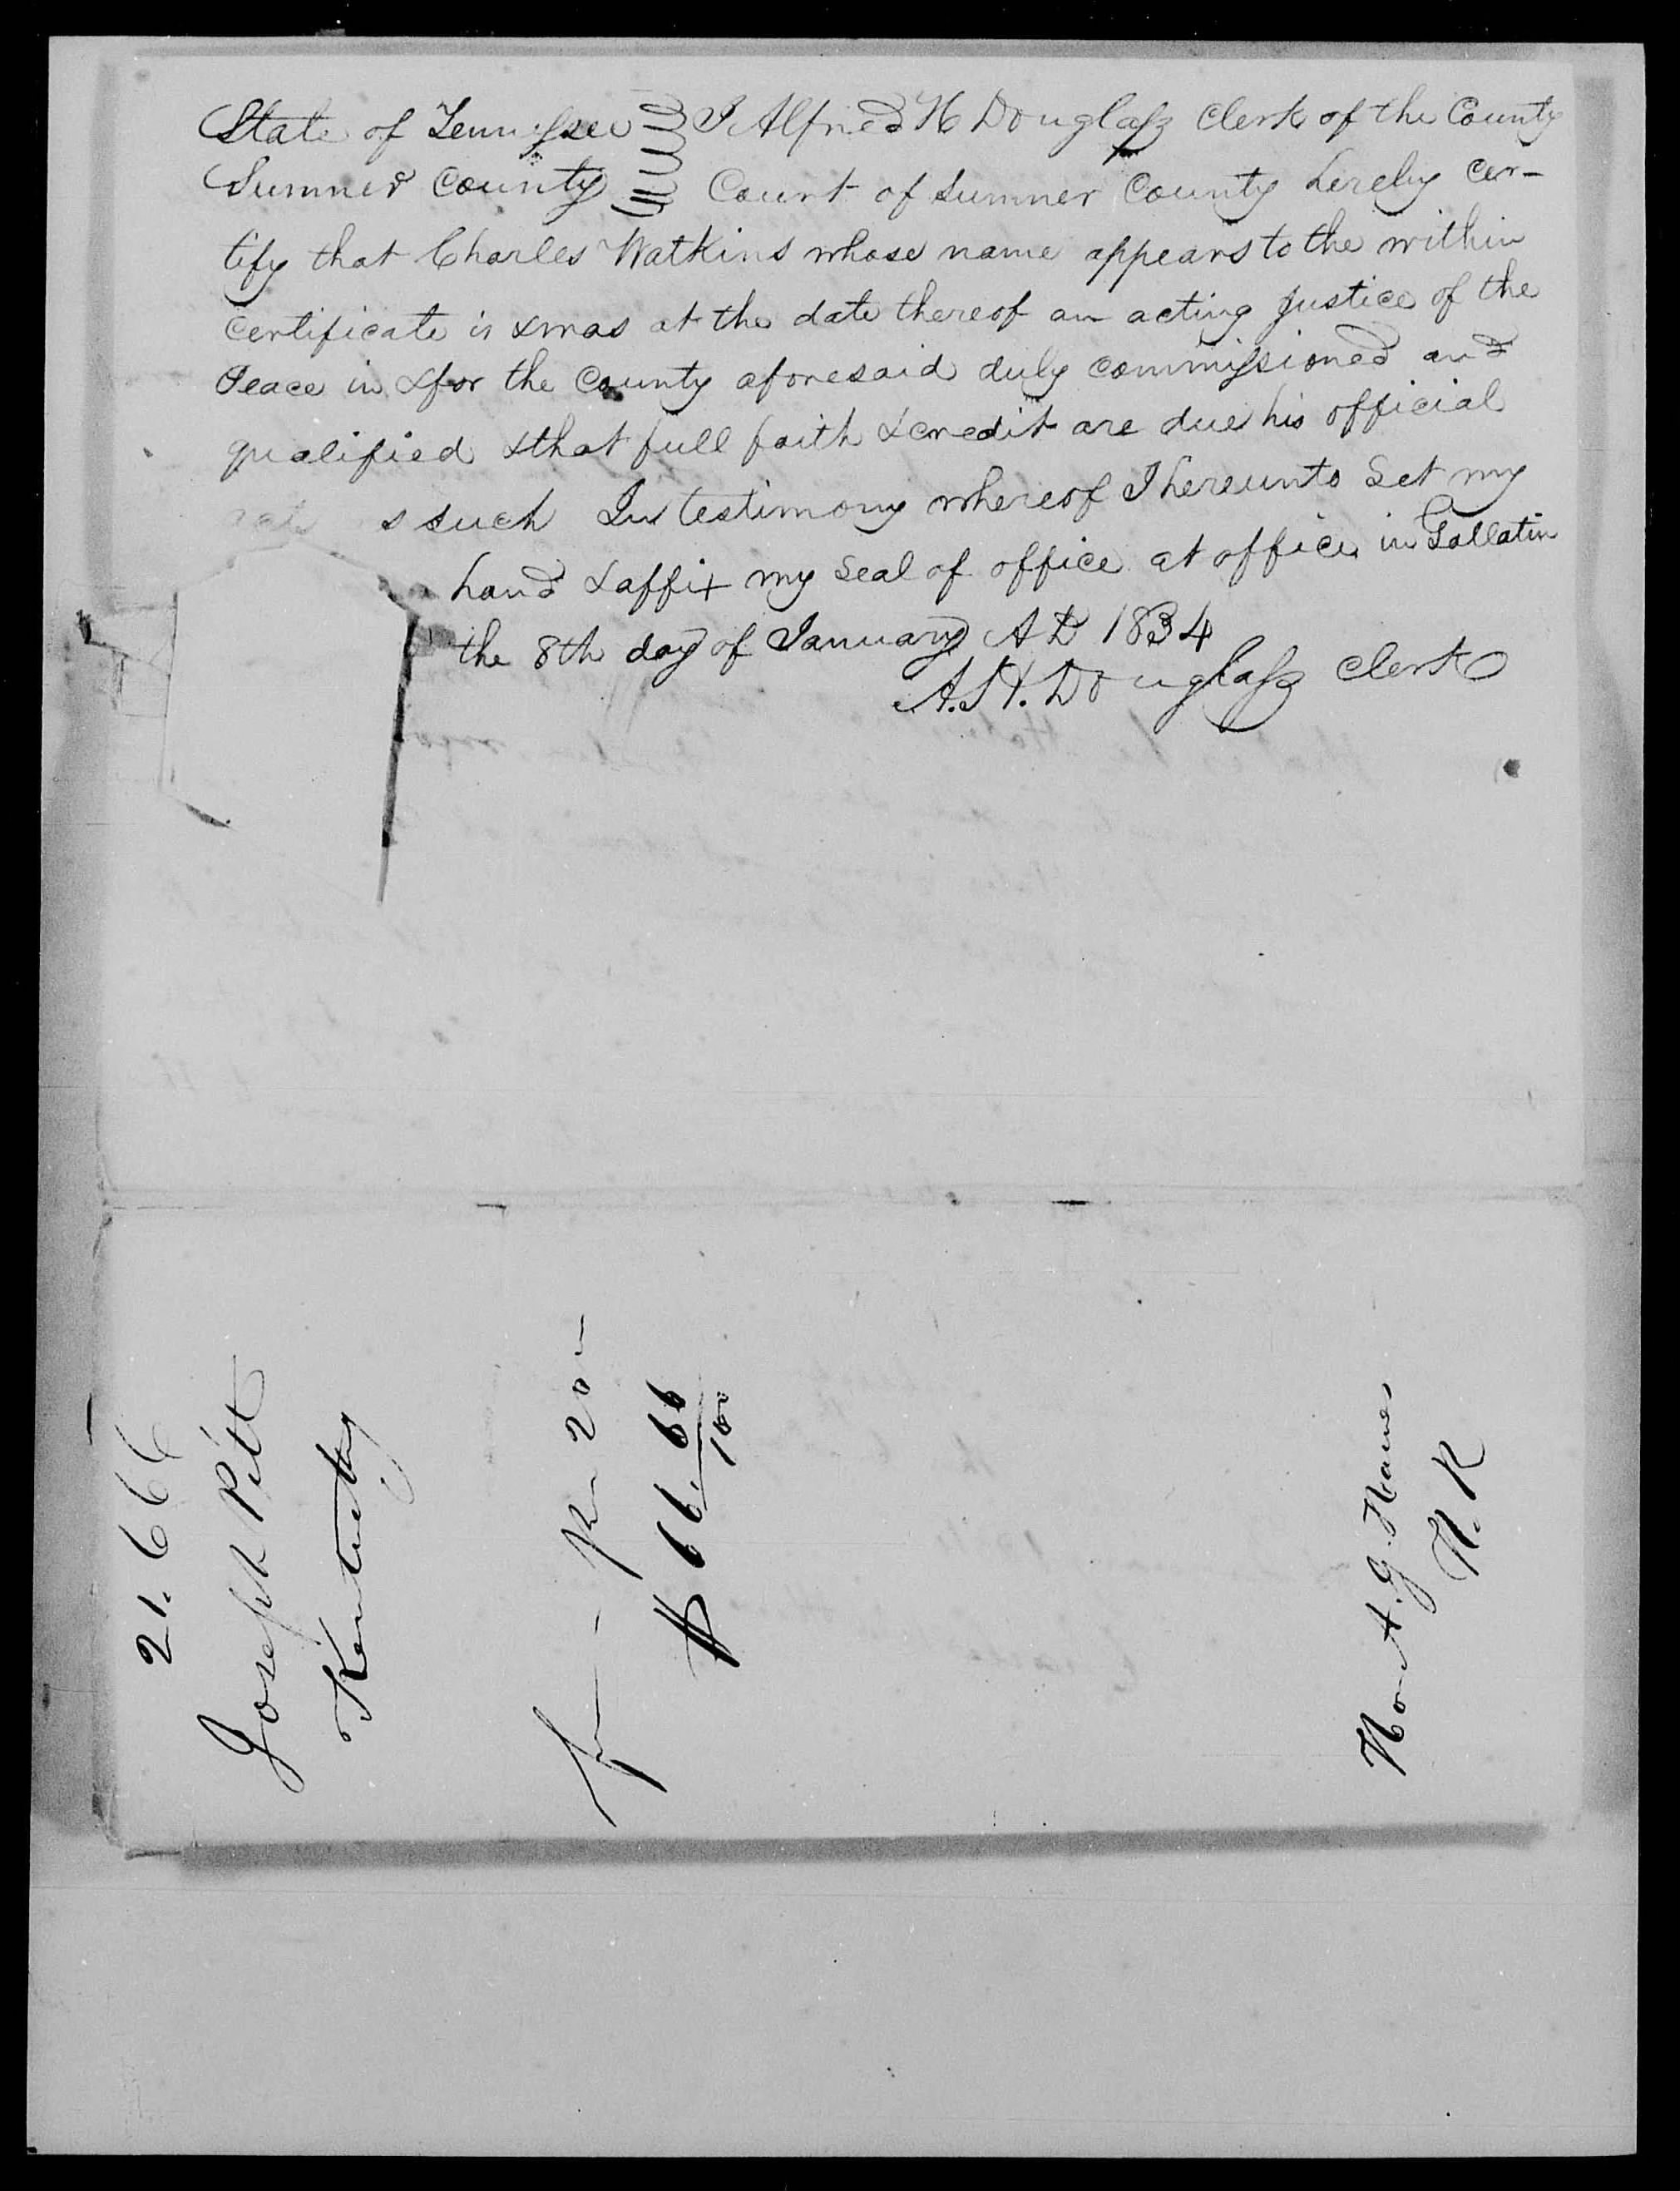 State of Tennessee I Alfred H Douglass Clerk of the County
Sumner County Court of Sumner County hereby cer-
tify that Charles Watkins whose name appears to the within
Certificate is & was at the date thereof an acting Justice of the
Peace in & for the County aforesaid duly commissioned and
qualified & that full faith & credit are due his official
act s such In testimony whereof I hereunto Set my
hand & affix my Seal of office at office in Gallatin
the 8th day of January A D 1834
A. H. Douglass Clerk
21.666
Joseph Pitt
Kentucky
20
$66.66/100
Hon A. G. Hawes
H. R